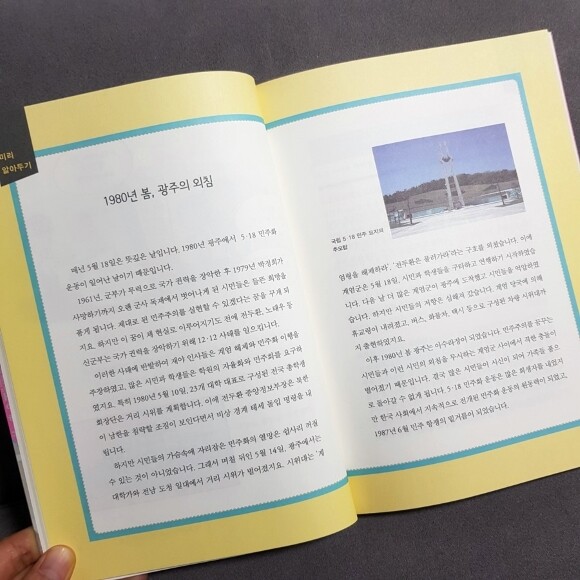 미리
알아두기
1980년 봄, 광주의 외침
매년 5월 18일은 뜻깊은 날입니다. 1980년 광주에서 5·18 민주화
운동이 일어난 날이기 때문입니다.
1961년, 군부가 무력으로 국가 권력을 장악한 후 1979년 박정희가
사망하기까지 오랜 군사 독재에서 벗어나게 된 시민들은 들뜬 희망을
품게 됩니다. 제대로 된 민주주의를 실현할 수 있겠다는 꿈을 꾸게 되
지요. 하지만 이 꿈이 채 현실로 이루어지기도 전에 전두환, 노태우 등
신군부는 국가 권력을 장악하기 위해 12·12 사태를 일으킵니다.
이러한 사태에 반발하여 재야 인사들은 계엄 해제와 민주화 이행을
주장하였고, 많은 시민과 학생들은 학원의 자율화와 민주화를 요구하
였지요. 특히 1980년 5월 10일, 23개 대학 대표로 구성된 전국 총학생
회장단은 거리 시위를 계획합니다. 이에 전두환 중앙정보부장은 북한
이 남한을 침략할 조짐이 보인다면서 비상 경계 태세 돌입 명령을 내
립니다.
하지만 시민들의 가슴속에 자리잡은 민주화의 열망은 쉽사리 꺼질
수 있는 것이 아니었습니다. 그래서 며칠 뒤인 5월 14일, 광주에서는
대학가와 전남 도청 일대에서 거리 시위가 벌어졌지요. 시위대는 '계
국립 5·18 민주 묘지의
추모탑
엄령을 해제하라', '전두환은 물러가라'라는 구호를 외쳤습니다. 이에
계엄군은 5월 18일, 시민과 학생들을 구타하고 연행하기 시작하였습
니다. 다음 날 더 많은 계엄군이 광주에 도착했고 시민들을 억압하였
습니다. 하지만 시민들의 저항은 심해져 갔습니다. 계엄 당국에 의해
휴교령이 내려졌고, 버스, 화물차, 택시 등으로 구성된 차량 시위대가
지 출현하였지요.
이후 1980년 봄 광주는 아수라장이 되었습니다. 민주주의를 꿈꾸는
시민들과 이런 시민의 외침을 두려워하는 계엄군 사이에서 격한 충돌이
벌어졌기 때문입니다. 결국 많은 시민들이 자신이 되어 가족을 품으
로 돌아갈 수 없게 됩니다. 5·18 민주화 운동은 많은 희생자를 내었지
만 한국 사회에서 지속적으로 전개된 민주화 운동의 원동력이 되었고,
1987년 6월 민주 항쟁의 밑거름이 되었습니다.